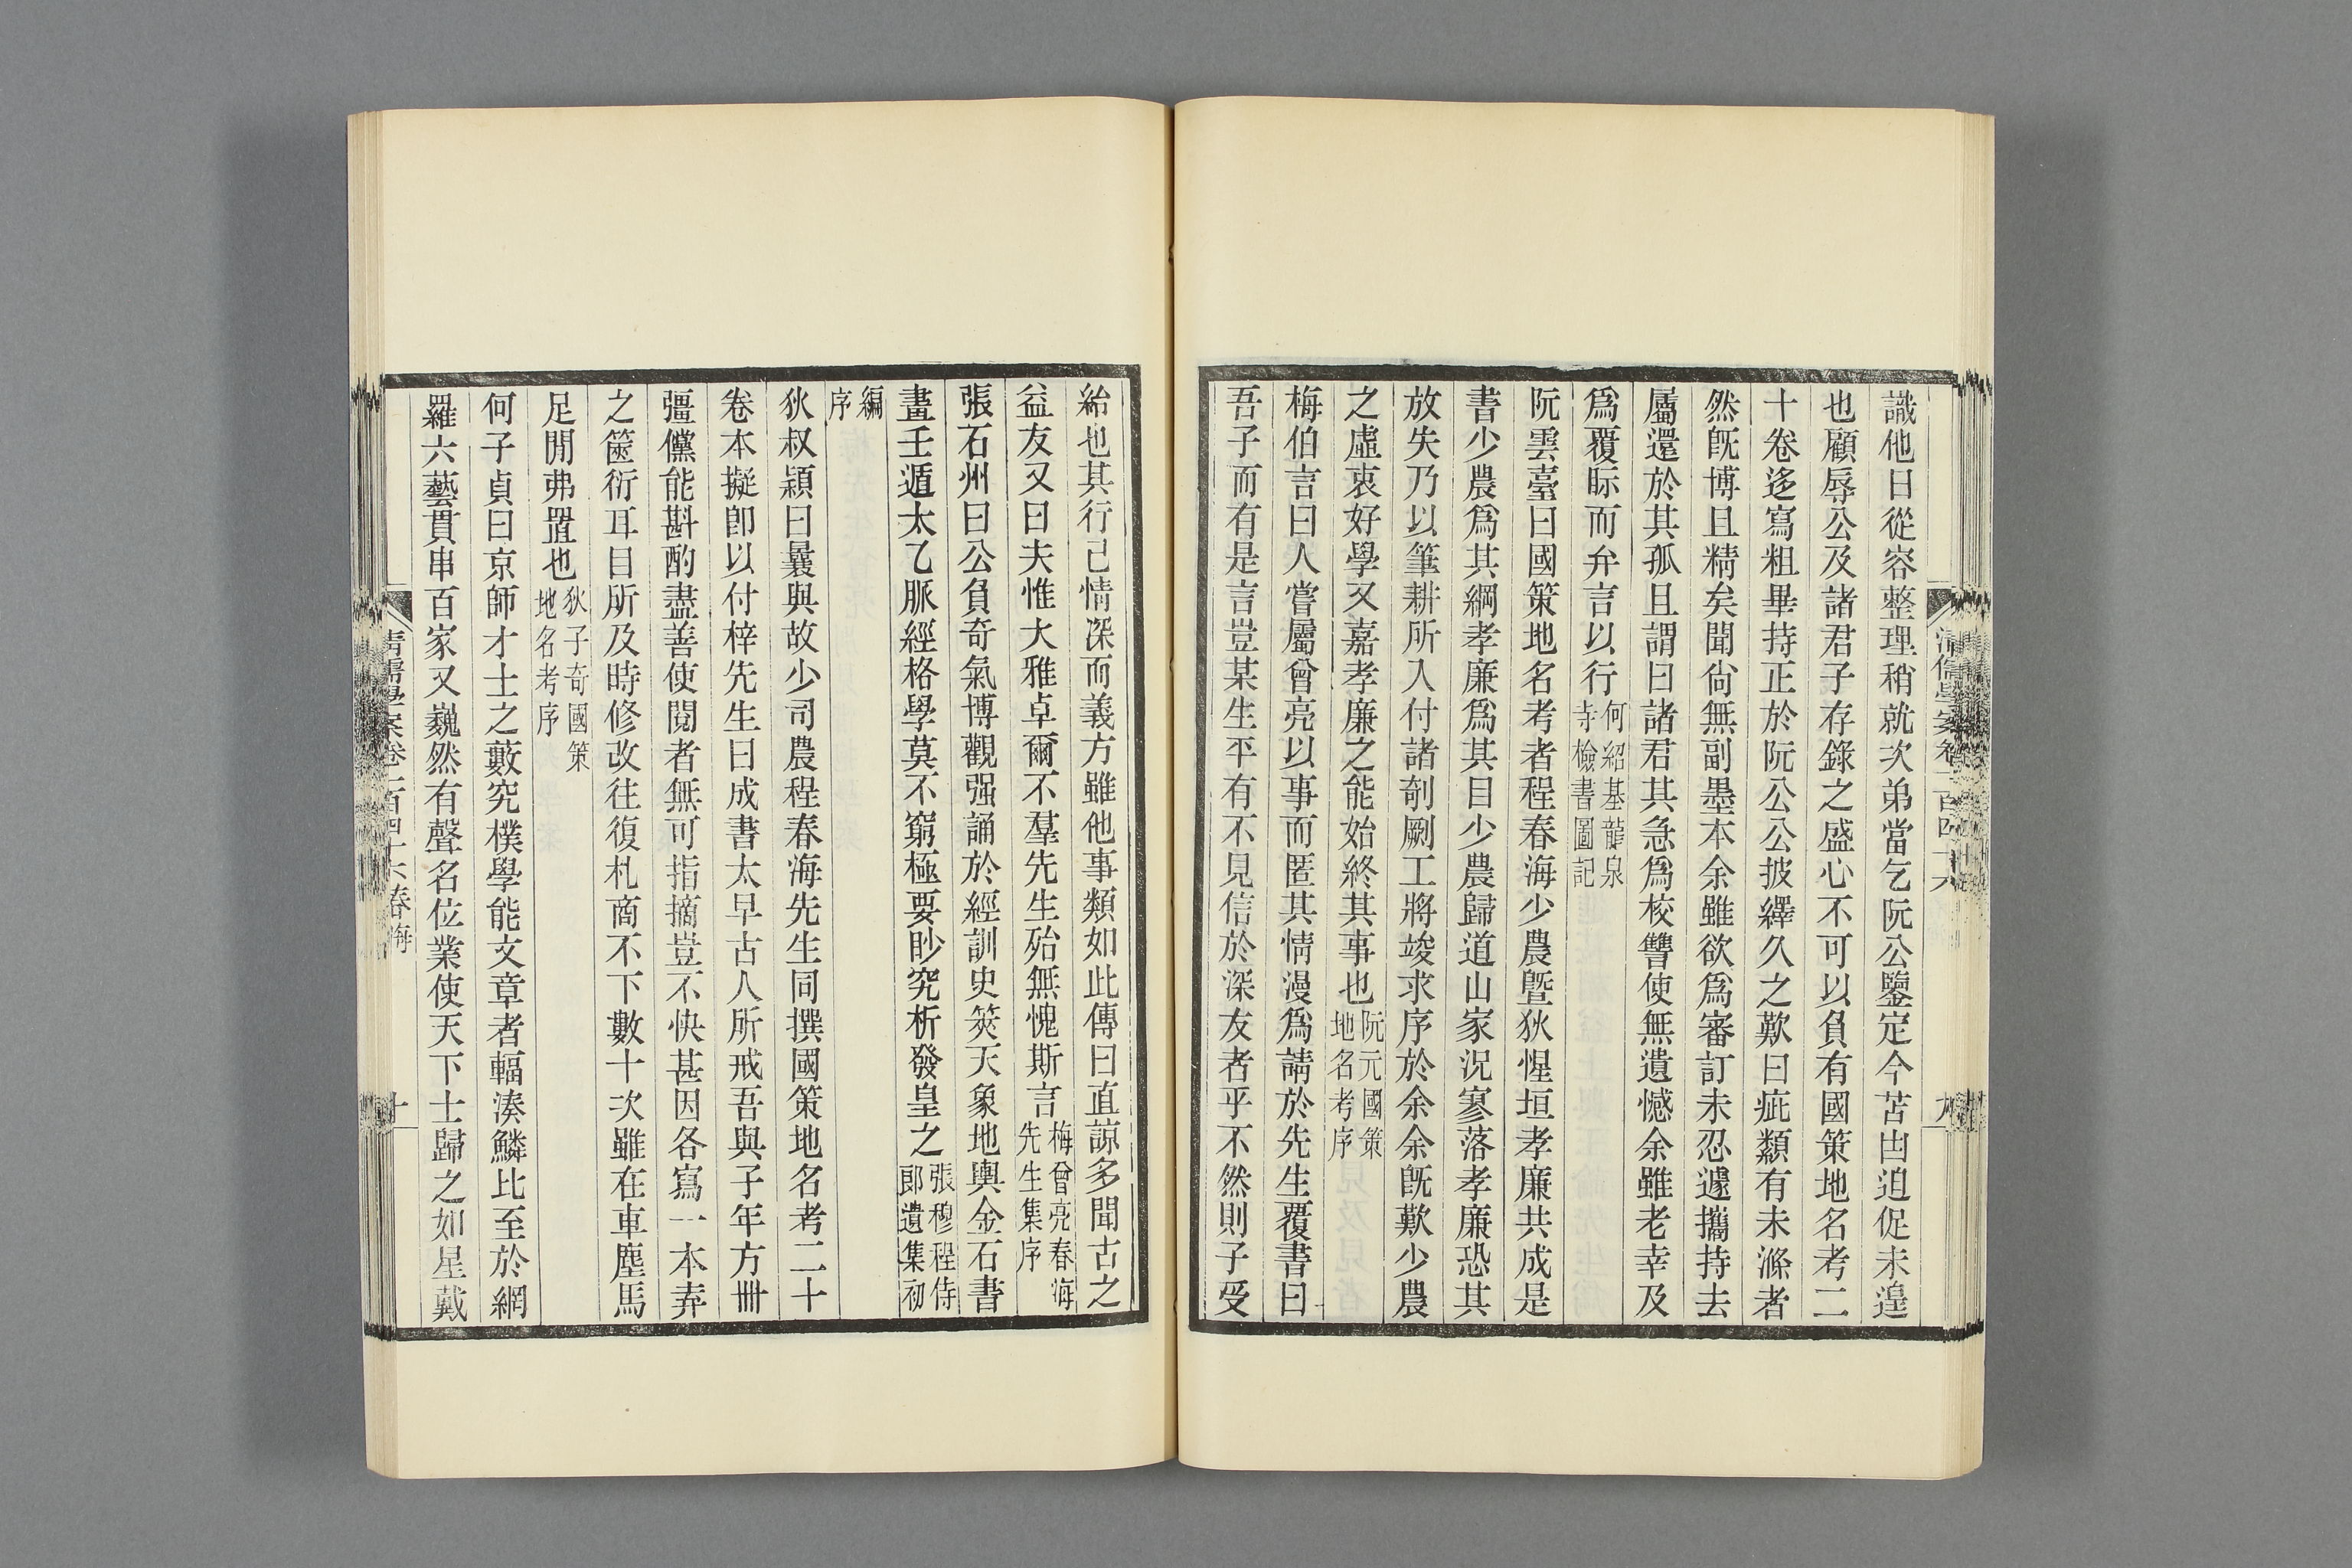 識他日從容整理稍就次弟當乞阮公鑒定今苦凷迫促未遑
也顧辱公及諸君子存錄之盛心不可以負有國策地名考二
十卷迻寫粗畢持正於阮公公披繹久之歎曰疵纇有未滌者
然旣博且精矣聞尙無副墨本余雖欲爲審訂未忍遽攜持去
屬還於其孤且謂曰諸君其急爲校讐使無遺憾余雖老幸及
爲覆眎而弁言以行何紹基龍泉寺檢書圖記
阮雲臺曰國策地名考者程春海少農曁狄惺垣孝廉共成是
書少農爲其綱孝廉爲其目少農歸道山家況寥落孝廉恐其
放失乃以筆耕所入付諸剞劂工將竣求序於余余旣歎少農
之虛衷好學又嘉孝廉之能始終其事也阮元國策地名考序
梅伯言曰人嘗屬曾亮以事而匿其情漫爲請於先生覆書曰
吾子而有是言豈某生平有不見信於深友者乎不然則子受
紿也其行己情深而義方雖他事類如此傳曰直諒多聞古之
益友又曰夫惟大雅卓爾不羣先生殆無愧斯言梅曾亮春海先生集序
張石州曰公負奇氣博觀强誦於經訓史筴天象地輿金石書
畫壬遁太乙脈經格學莫不窮極要眇究析發皇之張穆程侍郎遺集初
編序
狄叔穎曰曩與故少司農程春海先生同撰國策地名考二十
卷本擬卽以付梓先生曰成書太早古人所戒吾與子年方卌
彊儻能斟酌盡善使閱者無可指摘豈不快甚因各寫一本弆
之篋衍耳目所及時修改往復札商不下數十次雖在車塵馬
足閒弗置也狄子奇國策地名考序
何子貞曰京師才士之藪究樸學能文章者輻湊鱗比至於網
羅六藝貫串百家又巍然有聲名位業使天下士歸之如星戴